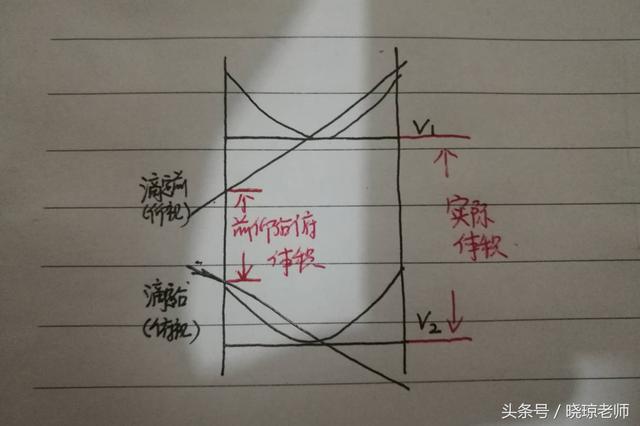 V1
滴定前
(仰视)
前仰后俯
体积
实际
体积
滴定后
(俯视)
V2
头条号／晓琼老师